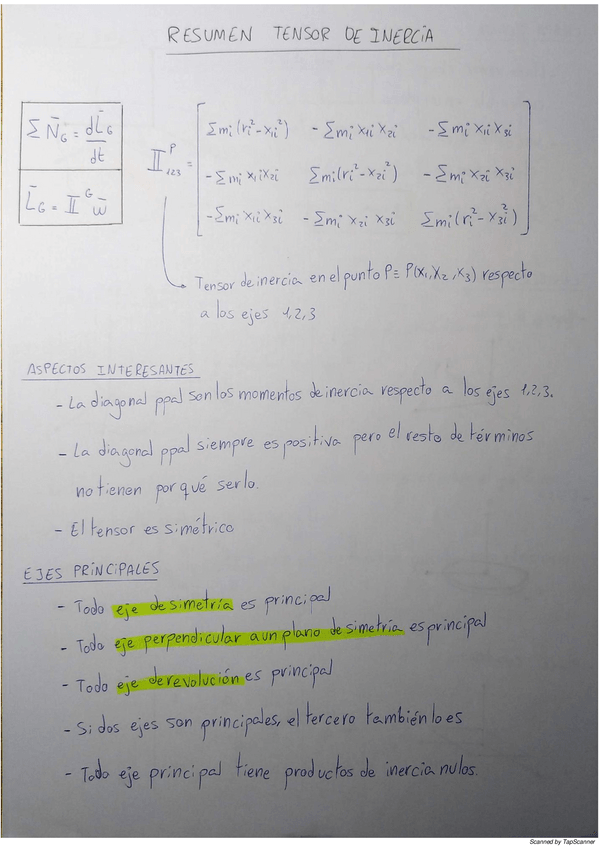 RESUMEN TENSOR DE INERCIA
Σ N̄_G = dL̄_G/dt
L̄_G = II^G w̄
II^P_123 =
Σmi(ri²-x1i²) -Σmi x1i x2i -Σmi x1i x3i
-Σmi x1i x2i Σmi(ri²-x2i²) -Σmi x2i x3i
-Σmi x1i x3i -Σmi x2i x3i Σmi(ri²-x3i²)
Tensor de inercia en el punto P≡P(x1,x2,x3) respecto
a los ejes 1,2,3
ASPECTOS INTERESANTES
- La diagonal ppal son los momentos de inercia respecto a los ejes 1,2,3.
- La diagonal ppal siempre es positiva pero el resto de términos
no tienen por qué serlo.
- El tensor es simétrico
EJES PRINCIPALES
- Todo eje de simetría es principal
- Todo eje perpendicular a un plano de simetría es principal
- Todo eje de revolución es principal
- Si dos ejes son principales, el tercero también lo es
- Todo eje principal tiene productos de inercia nulos.
Scanned by TapScanner